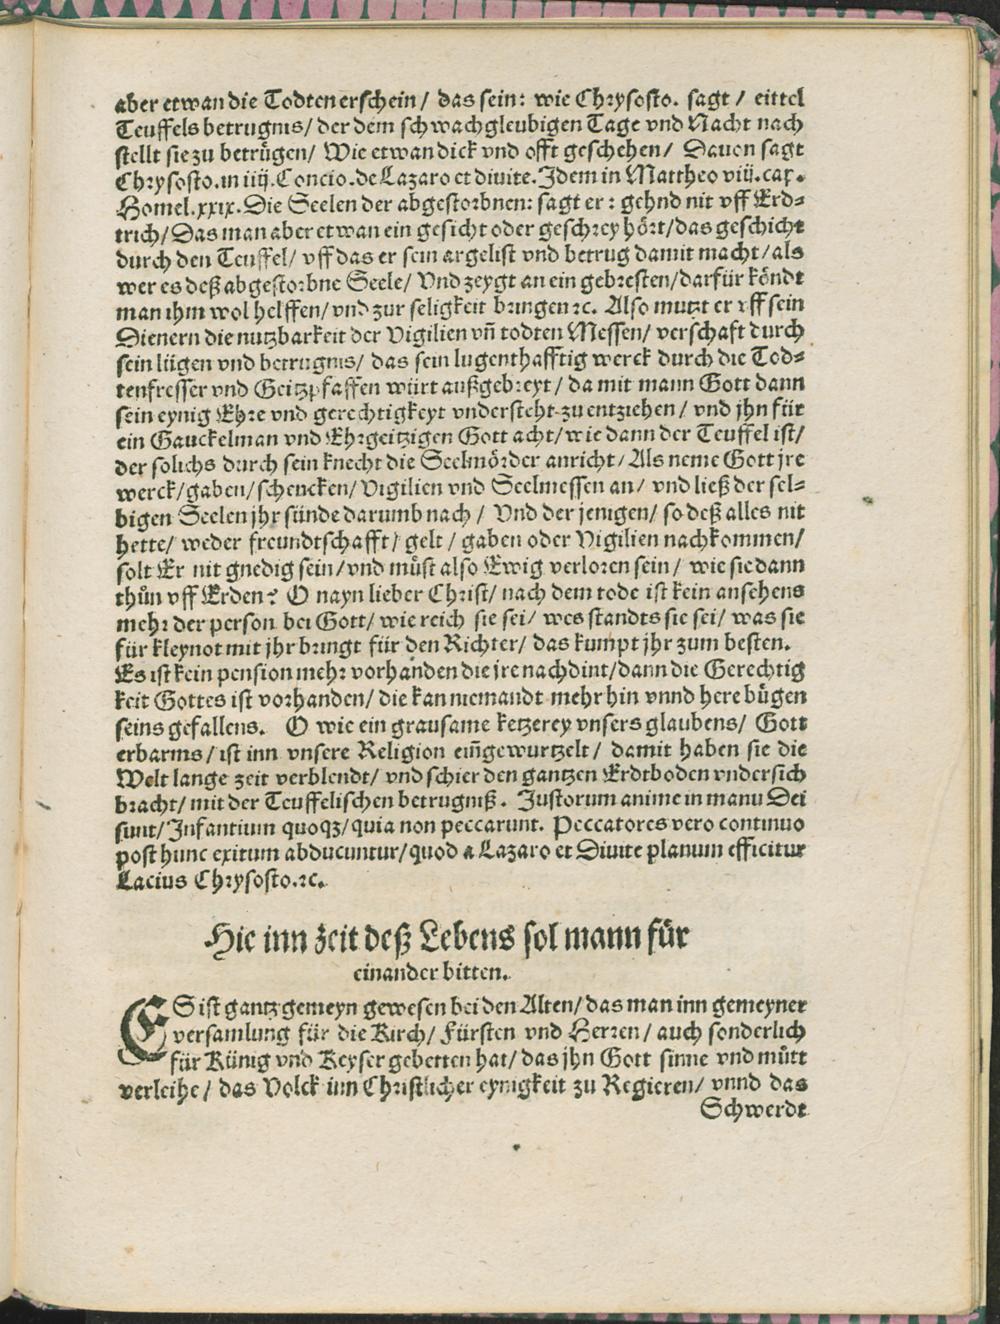 aber etwan die Todten erschein / das sein: wie Chrysosto. sagt / eittel
Teuffels betrugnis/ der dem schwachgleubigen Tage vnd Nacht nach
stellt sie zu betrügen/ Wie etwan dick vnd offt geschehen/ Dauon sagt
Chrysosto. in iiij. Concio. de Lazaro et diuite. Idem in Mattheo viij. cap.
Homel. xxix. Die Seelen der abgestorbnen: sagt er: gehnd nit vff Erd⸗
trich/ Das man aber etwan ein gesicht oder geschrey hört/ das geschicht
durch den Teuffel/ vff das er sein argelist vnd betrug damit macht/ als
wer es deß abgestorbne Seele/ Vnd zeygt an ein gebresten/ darfür köndt
man ihm wol helffen/ vnd zur seligkeit bringen ꝛc. Also mutzt er vff sein
Dienern die nutzbarkeit der Vigilien vñ todten Messen/ verschaft durch
sein lügen vnd betrugnis/ das sein lugenthafftig werck durch die Tod⸗
tenfresser vnd Geitzpfaffen würt außgebreyt/ da mit mann Gott dann
sein eynig Ehre vnd gerechtigkeyt vndersteht zu entziehen / vnd jhn für
ein Gauckelman vnd Ehrgeitzigen Gott acht/ wie dann der Teuffel ist/
der solichs durch sein knecht die Seelmörder anricht/ Als neme Gott jre
werck/ gaben/ schencken/ Vigilien vnd Seelmessen an/ vnd ließ der sel⸗
bigen Seelen jhr sünde darumb nach / Vnd der jenigen/ so deß alles nit
hette/ weder freundtschafft/ gelt / gaben oder Vigilien nachkommen/
solt Er nit gnedig sein/ vnd müst also Ewig verloren sein/ wie sie dann
thůn vff Erden? O nayn lieber Christ/ nach dem tode ist kein ansehens
mehr der person bei Gott/ wie reich sie sei/ wes standts sie sei/ was sie
für kleynot mit jhr bringt für den Richter/ das kumpt jhr zum besten.
Es ist kein pension mehr vorhanden die jre nachdint/ dann die Gerechtig
keit Gottes ist vorhanden/ die kan niemandt mehr hin vnnd here bügen
seins gefallens. O wie ein grausame ketzerey vnsers glaubens/ Gott
erbarms/ ist inn vnsere Religion eiñgewurtzelt/ damit haben sie die
Welt lange zeit verblendt/ vnd schier den gantzen Erdtboden vndersich
bracht/ mit der Teuffelischen betrugniß. Justorum anime in manu Dei
sunt/ Infantium quoqȝ/ quia non peccarunt. Peccatores vero continuo
post hunc exitum abducuntur/ quod a Lazaro et Diuite planum efficitur
Lacius Chrysosto. ꝛc.
Hie inn zeit deß Lebens sol mann für
einander bitten.
ES ist gantz gemeyn gewesen bei den Alten/ das man inn gemeyner
versamlung für die Kirch/ Fürsten vnd Herren/ auch sonderlich
für Künig vnd Keyser gebetten hat/ das jhn Gott sinne vnd můtt
verleihe/ das Volck inn Christlicher eynigkeit zu Regieren/ vnnd das
Schwerdt